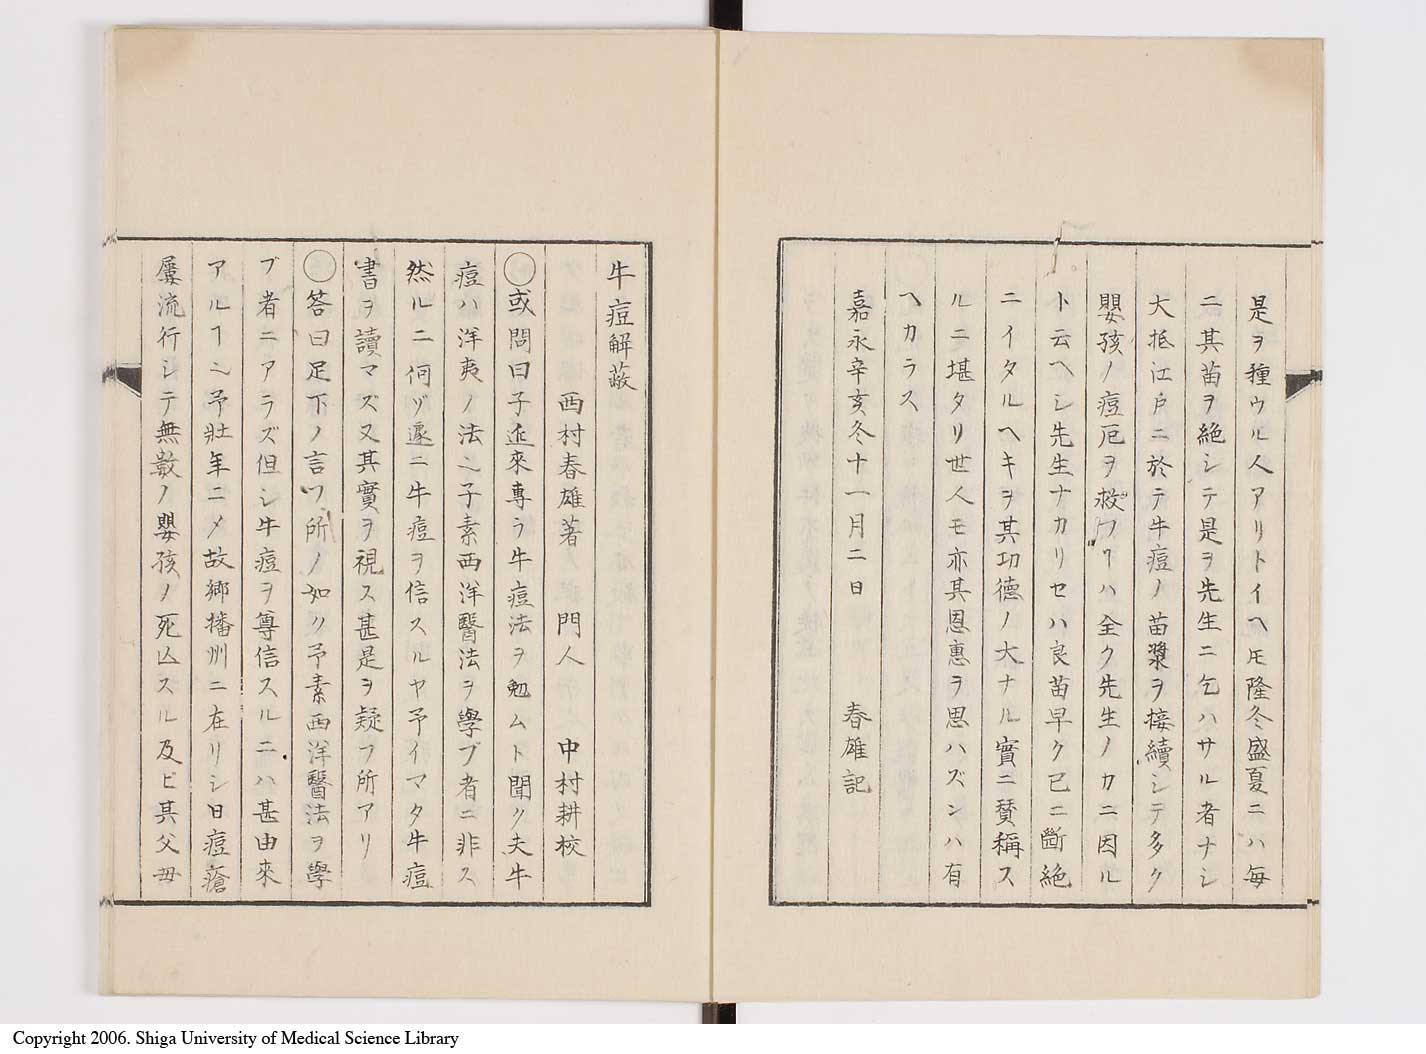 是ヲ種ウル人アリトイヘ𪜈隆冬盛夏ニハ毎
ニ其苗ヲ絶シテ是ヲ先生ニ乞ハサル者ナシ
大抵江戸ニ於テ牛痘ノ苗漿ヲ接續シテ多ク
嬰孩ノ痘厄ヲ救フヿハ全ク先生ノ力ニ因ル
ト云ヘシ先生ナカリセハ良苗早ク已ニ斷絶
ニイタルヘキヲ其功徳ノ大ナル實ニ賛稱ス
ルニ堪タリ世人モ亦其恩惠ヲ思ハズンハ有
ヘカラス
嘉永辛亥冬十一月二日 春雄記
牛痘解蔽
西村春雄著 門人 中村耕校
○或問曰子近來專ラ牛痘法ヲ勉ムト聞ク夫牛
痘ハ洋夷ノ法之子素西洋醫法ヲ學ブ者ニ非ス
然ルニ何ゾ遽ニ牛痘ヲ信スルヤ予イマタ牛痘
書ヲ讀マズ又其實ヲ視ス甚是ヲ疑フ所アリ
○答曰足下ノ言フ所ノ如ク予素西洋醫法ヲ學
ブ者ニアラズ但シ牛痘ヲ尊信スルニハ甚由來
アルヿ之予壯年ニメ故郷播州ニ在リシ日痘瘡
屢流行シテ無數ノ嬰孩ノ死亡スル及ビ其父母
Copyright 2006. Shiga University of Medical Science Library